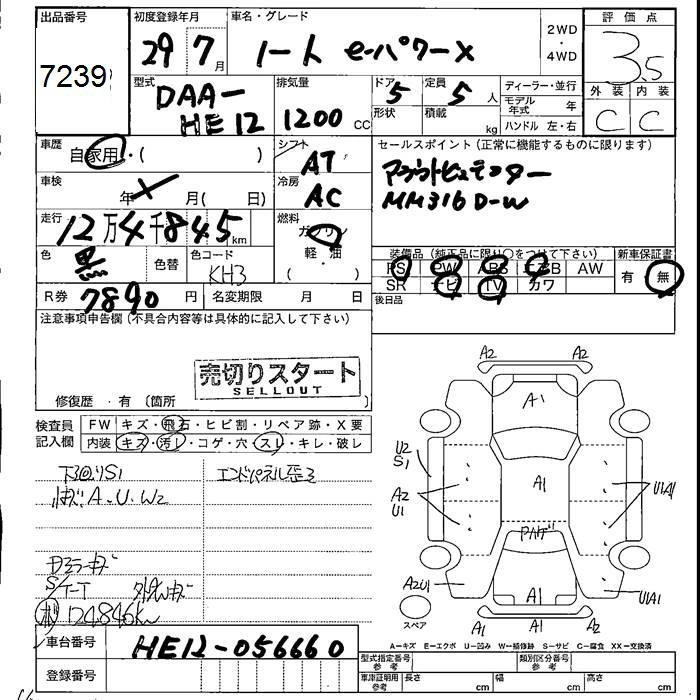 出品番号 初度登録年月 車名・グレード 2WD・4WD 評価点
7239 29 7月 ノート e-パワーX 3.5
型式 排気量 ドア 定員 ディーラー・並行 外装 内装
DAA-HE12 1200 CC 5 5人 モデル年式 年 C C
形状 積載 kg ハンドル 左・右
車歴 自家用・( ) シフト AT セールスポイント(正常に機能するものに限ります)
車検 年 月( 日) 冷房 AC アラウンドビューモニター
MM316D-W
走行 12万4千845km 燃料 ガソリン・軽油
色 黒 色替 色コード KH3
装備品(純正品に限り○をつけて下さい) 新車保証書
PS PW ABS エアB AW 有 無
SR ナビ TV カワ
R券 7890円 名変期限 月 日 後日品
注意事項申告欄(不具合内容等は具体的に記入して下さい)
売切りスタート
SELLOUT
修復歴・有(箇所 )
検査員記入欄 FW キズ・飛石・ヒビ割・リペア跡・X要
内装 キズ・汚レ・コゲ・穴・スレ・キレ・破レ
下回りS1 エンドパネル歪ミ
A・U・W2
ドアミラーキズ
S/T-T
124,846km
A2 A2
A1
U2
S1
A2
U1
A1
U1A1
A2U1
A1
U1A1
スペア
A1 A1
A-キズ E-エクボ U-凹み W-補修跡 S-サビ C-腐食 XX-交換済
車台番号 HE12-056660
型式指定番号 参考 類別区分番号 参考
登録番号
車庫証明用 参考 長さ cm 幅 cm 高さ cm